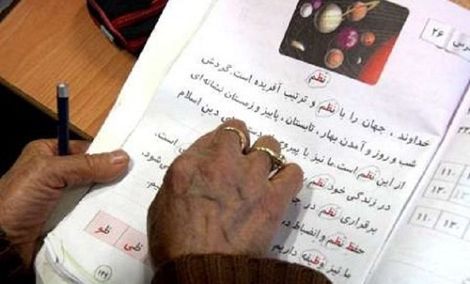 ۲۶
نظم
خداوند ، جهان را با نظم و ترتیب آفریده است. گردش
شب و روز و آمدن بهار، تابستان، پاییز و زمستان نشانه‌ای
از این نظم است. ما نیز با پیروی دین اسلام
در زندگی خود نظم است.
برقراری نظم در می‌شود.
حفظ نظم و انضباط در
ما نیز وظیفه داریم
ظی ظو